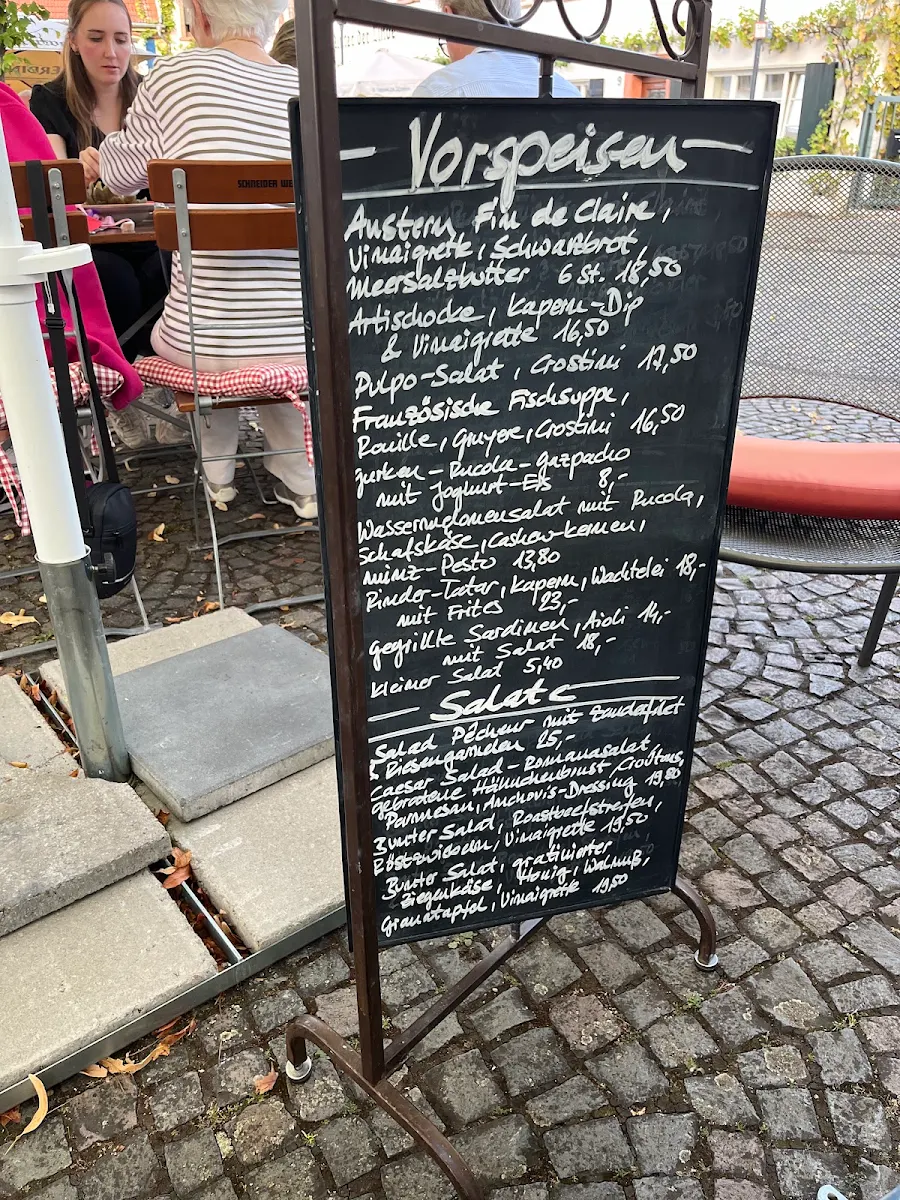 SCHNEIDER WE
Vorspeisen
Austern Fin de Claire,
Vinaigrette, Schwarzbrot,
Meersalzbutter 6 St. 18,50
Artischocke, Kapern-Dip
& Vinaigrette 16,50
Pulpo-Salat, Crostini 17,50
Französische Fischsuppe,
Rouille, Gruyere, Crostini 16,50
Gurken-Rucola-Gazpacho
mit Joghurt-Eis 8,-
Wassermelonensalat mit Rucola,
Schafskäse, Cashew-kernen,
Minz-Pesto 13,80
Rinder-Tatar, Kapern, Wachtelei 18,-
mit Frites 23,-
gegrillte Sardinen, Aioli 14,-
mit Salat 18,-
kleiner Salat 5,40
Salate
Salad Pêcheur mit Zanderfilet
& Riesengarnelen 25,-
Caesar Salad - Romanasalat,
gebratene Hähnchenbrust, Croûtons,
Parmesan, Anchovis-Dressing 19,80
Bunter Salat, Roastbeefstreifen,
Röstzwiebeln, Vinaigrette 19,50
Bunter Salat, gratinierter
Ziegenkäse, Honig, Walnuß,
Granatapfel, Vinaigrette 19,50